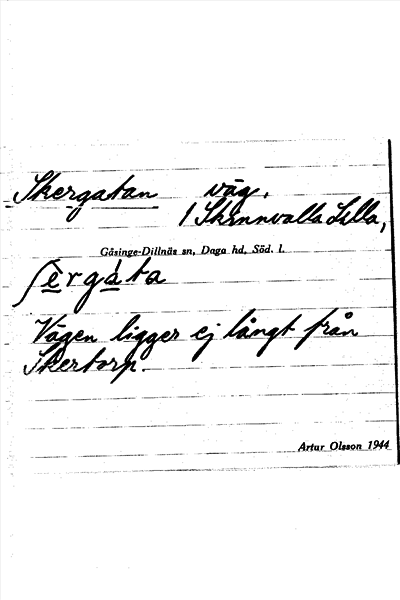 Skergatan väg.
1 Skinnvalla Lilla,
Gåsinge-Dillnäs sn, Daga hd, Söd. l.
ʃèrgàta
Vägen ligger ej långt från
Skertorp.
Artur Olsson 1944